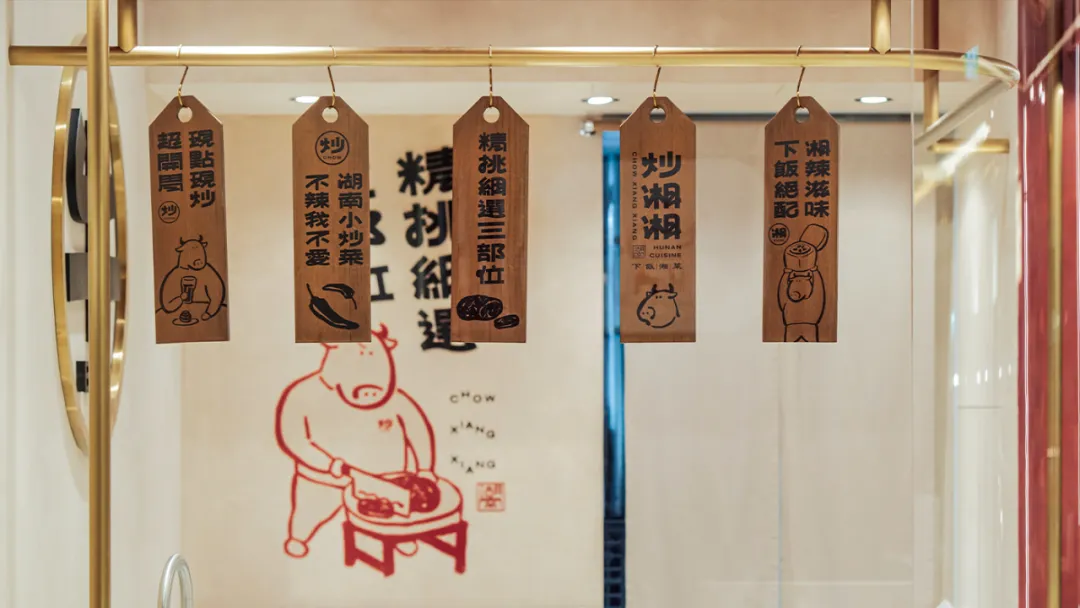 現點現炒
超開胃
炒
炒
CHOW
湖南小炒菜
不辣我不愛
精挑細選三部位
炒湘湘
CHOW XIANG XIANG
HUNAN
CUISINE
下飯湘菜
湘辣滋味
下飯絕配
湘
精挑細選
炒
CHOW
XIANG
XIANG